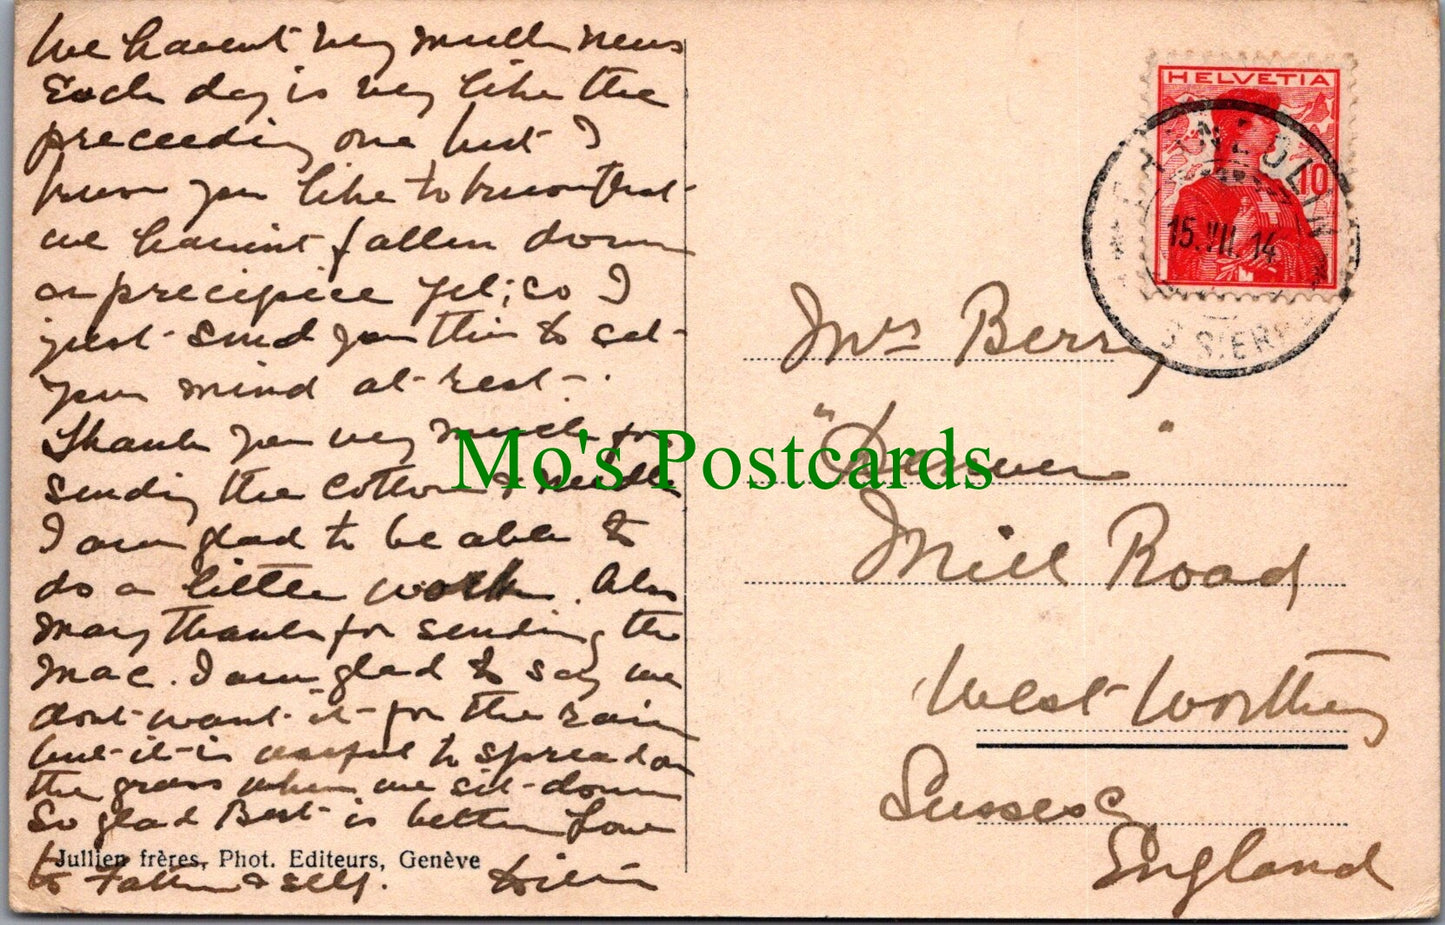 We havent very much news
Each day is very like the
preceeding one but I
know you like to know that
we havent fallen down
a precipice yet; so I
just send you this to set
your mind at rest.
Thank you very much for
sending the cotton & needles
I am glad to be able to
do a little work. Also
many thanks for sending the
mac. I am glad to say we
dont want it for the rain
but it is useful to spread on
the grass when we sit down
So glad Bert is better Love
to Father & self.
Jullien frères, Phot. Editeurs, Genève
HELVETIA
10
15.VII.14
SIERRE
Mrs Berry
Mill Road
West Worthing
Sussex
England
Mo's Postcards